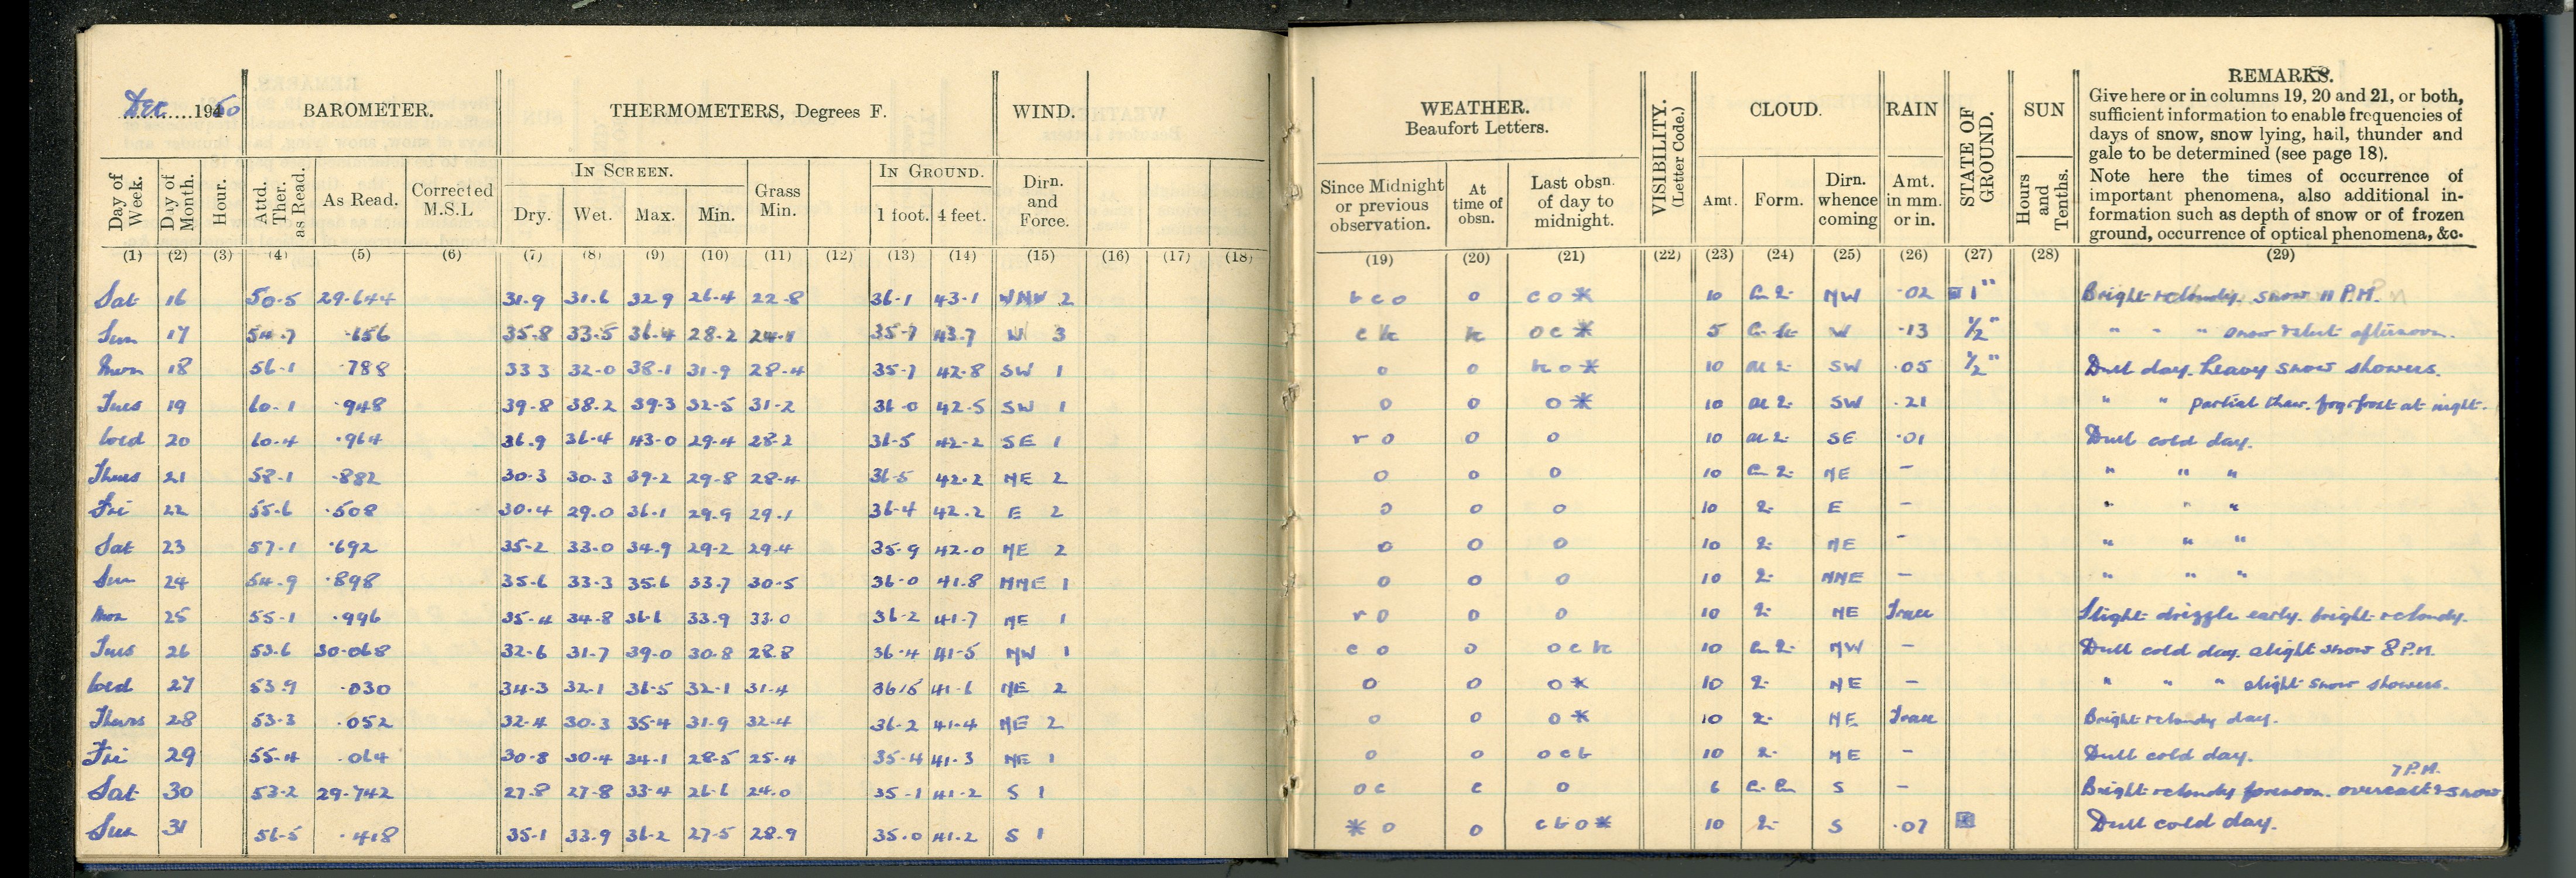 Dec. 1950 BAROMETER. THERMOMETERS, Degrees F. WIND.
Day of Week. Day of Month. Hour. Attd. Ther. as Read. As Read. Corrected M.S.L IN SCREEN. Dry. Wet. Max. Min. Grass Min. IN GROUND. 1 foot. 4 feet. Dirn. and Force.
(1) (2) (3) (4) (5) (6) (7) (8) (9) (10) (11) (12) (13) (14) (15) (16) (17) (18)
Sat 16 50.5 29.644 31.9 31.6 32.9 26.4 22.8 36.1 43.1 WNW 2
Sun 17 54.7 .656 35.8 33.5 36.4 28.2 24.1 35.7 43.7 W 3
Mon 18 56.1 .788 33 3 32.0 38.1 31.9 28.4 35.7 42.8 SW 1
Tues 19 60.1 .948 39.8 38.2 39.3 32.5 31.2 36.0 42.5 SW 1
Wed 20 60.4 .964 36.9 36.4 43.0 29.4 28.2 36.5 42.2 SE 1
Thurs 21 58.1 .882 30.3 30.3 39.2 29.8 28.4 36.5 42.2 NE 2
Fri 22 55.6 .508 30.4 29.0 36.1 29.9 29.1 36.4 42.2 E 2
Sat 23 57.1 .692 35.2 33.0 34.9 29.2 29.4 35.9 42.0 NE 2
Sun 24 54.9 .898 35.6 33.3 35.6 33.7 30.5 36.0 41.8 NNE 1
Mon 25 55.1 .996 35.4 34.8 36.6 33.9 33.0 36.2 41.7 NE 1
Tues 26 53.6 30.068 32.6 31.7 39.0 30.8 28.8 36.4 41.5 NW 1
Wed 27 53.9 .030 34.3 32.1 36.5 32.1 31.4 36.5 41.6 NE 2
Thurs 28 53.3 .052 32.4 30.3 35.4 31.9 32.4 36.2 41.4 NE 2
Fri 29 55.4 .064 30.8 30.4 34.1 28.5 25.4 35.4 41.3 NE 1
Sat 30 53.2 29.742 27.8 27.8 33.4 26.6 24.0 35.1 41.2 S 1
Sun 31 56.5 .418 35.1 33.9 36.2 27.5 28.9 35.0 41.2 S 1
WEATHER. Beaufort Letters. VISIBILITY. (Letter Code.) CLOUD. RAIN STATE OF GROUND. SUN REMARKS.
Since Midnight or previous observation. At time of obsn. Last obsn. of day to midnight. Amt. Form. Dirn. whence coming Amt. in mm. or in. Hours and Tenths.
Give here or in columns 19, 20 and 21, or both,
sufficient information to enable frequencies of
days of snow, snow lying, hail, thunder and
gale to be determined (see page 18).
Note here the times of occurrence of
important phenomena, also additional in-
formation such as depth of snow or of frozen
ground, occurrence of optical phenomena, &c.
(19) (20) (21) (22) (23) (24) (25) (26) (27) (28) (29)
b c o o c o * 10 NW .02 1" Bright & cloudy. snow 11 P.M.
c o c * 5 W .13 1/2" " " " snow afternoon.
o o o * 10 SW .05 1/2" Dull day. heavy snow showers.
o o o * 10 SW .21 " " partial thaw. fog & frost at night.
r o o o 10 SE .01 Dull cold day.
o o o 10 NE - " " "
o o o 10 E - " " "
o o o 10 NE - " " "
o o o 10 NNE - " " "
r o o o 10 NE Trace Slight drizzle early. bright & cloudy.
c o o o c 10 NW - Dull cold day. slight snow 8 P.M.
o o o * 10 NE - " " " slight snow showers.
o o o * 10 NE Trace Bright & cloudy day.
o o o c b 10 NE - Dull cold day.
o c c o 6 S - Bright & cloudy forenoon. overcast & snow 7 P.M.
* o o c b o * 10 S .07 Dull cold day.